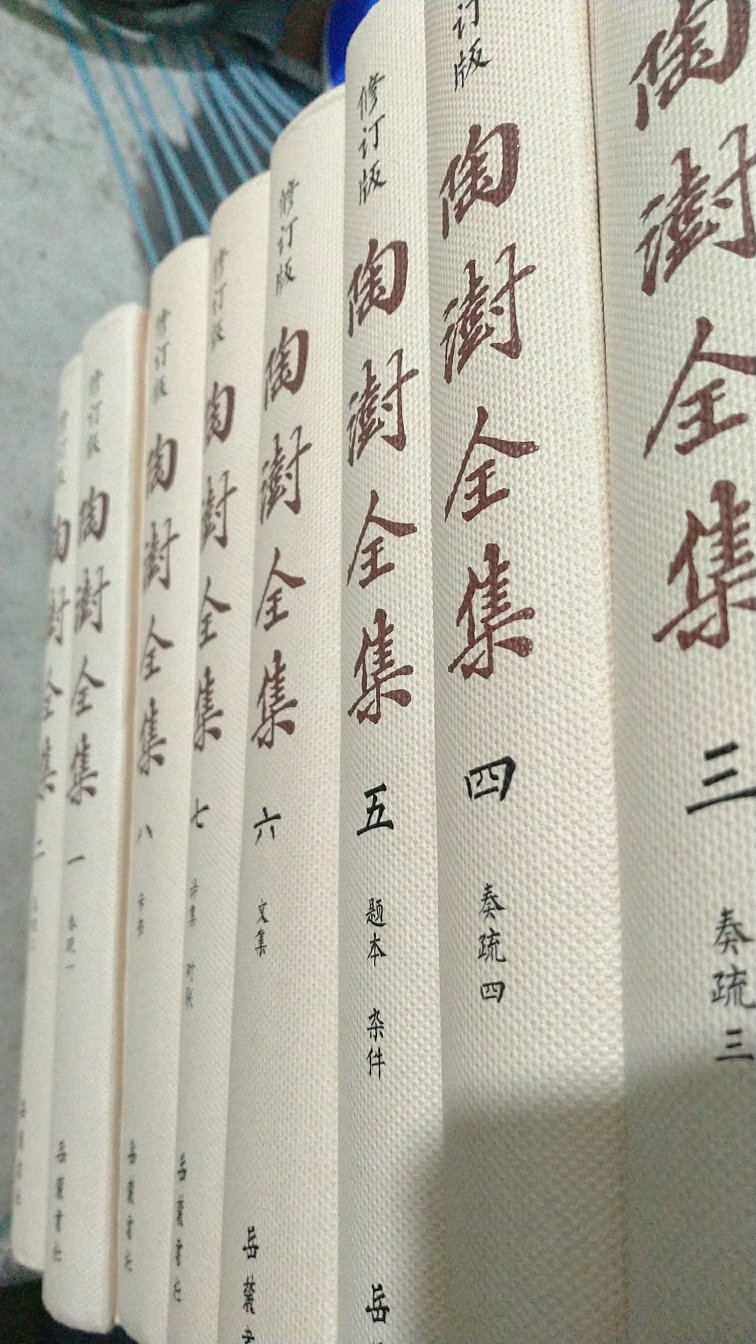 陶澍全集
三
奏疏 三
订版
陶澍全集
四
奏疏 四
修订版
陶澍全集
五
题本 杂件
岳
修订版
陶澍全集
六
文集
岳麓书
修订版
陶澍全集
七
诗集 对联
岳麓书社
修订版
陶澍全集
八
岳麓书社
修订版
陶澍全集
一
奏疏一
岳麓书社
修订版
陶澍全集
二
岳麓书社